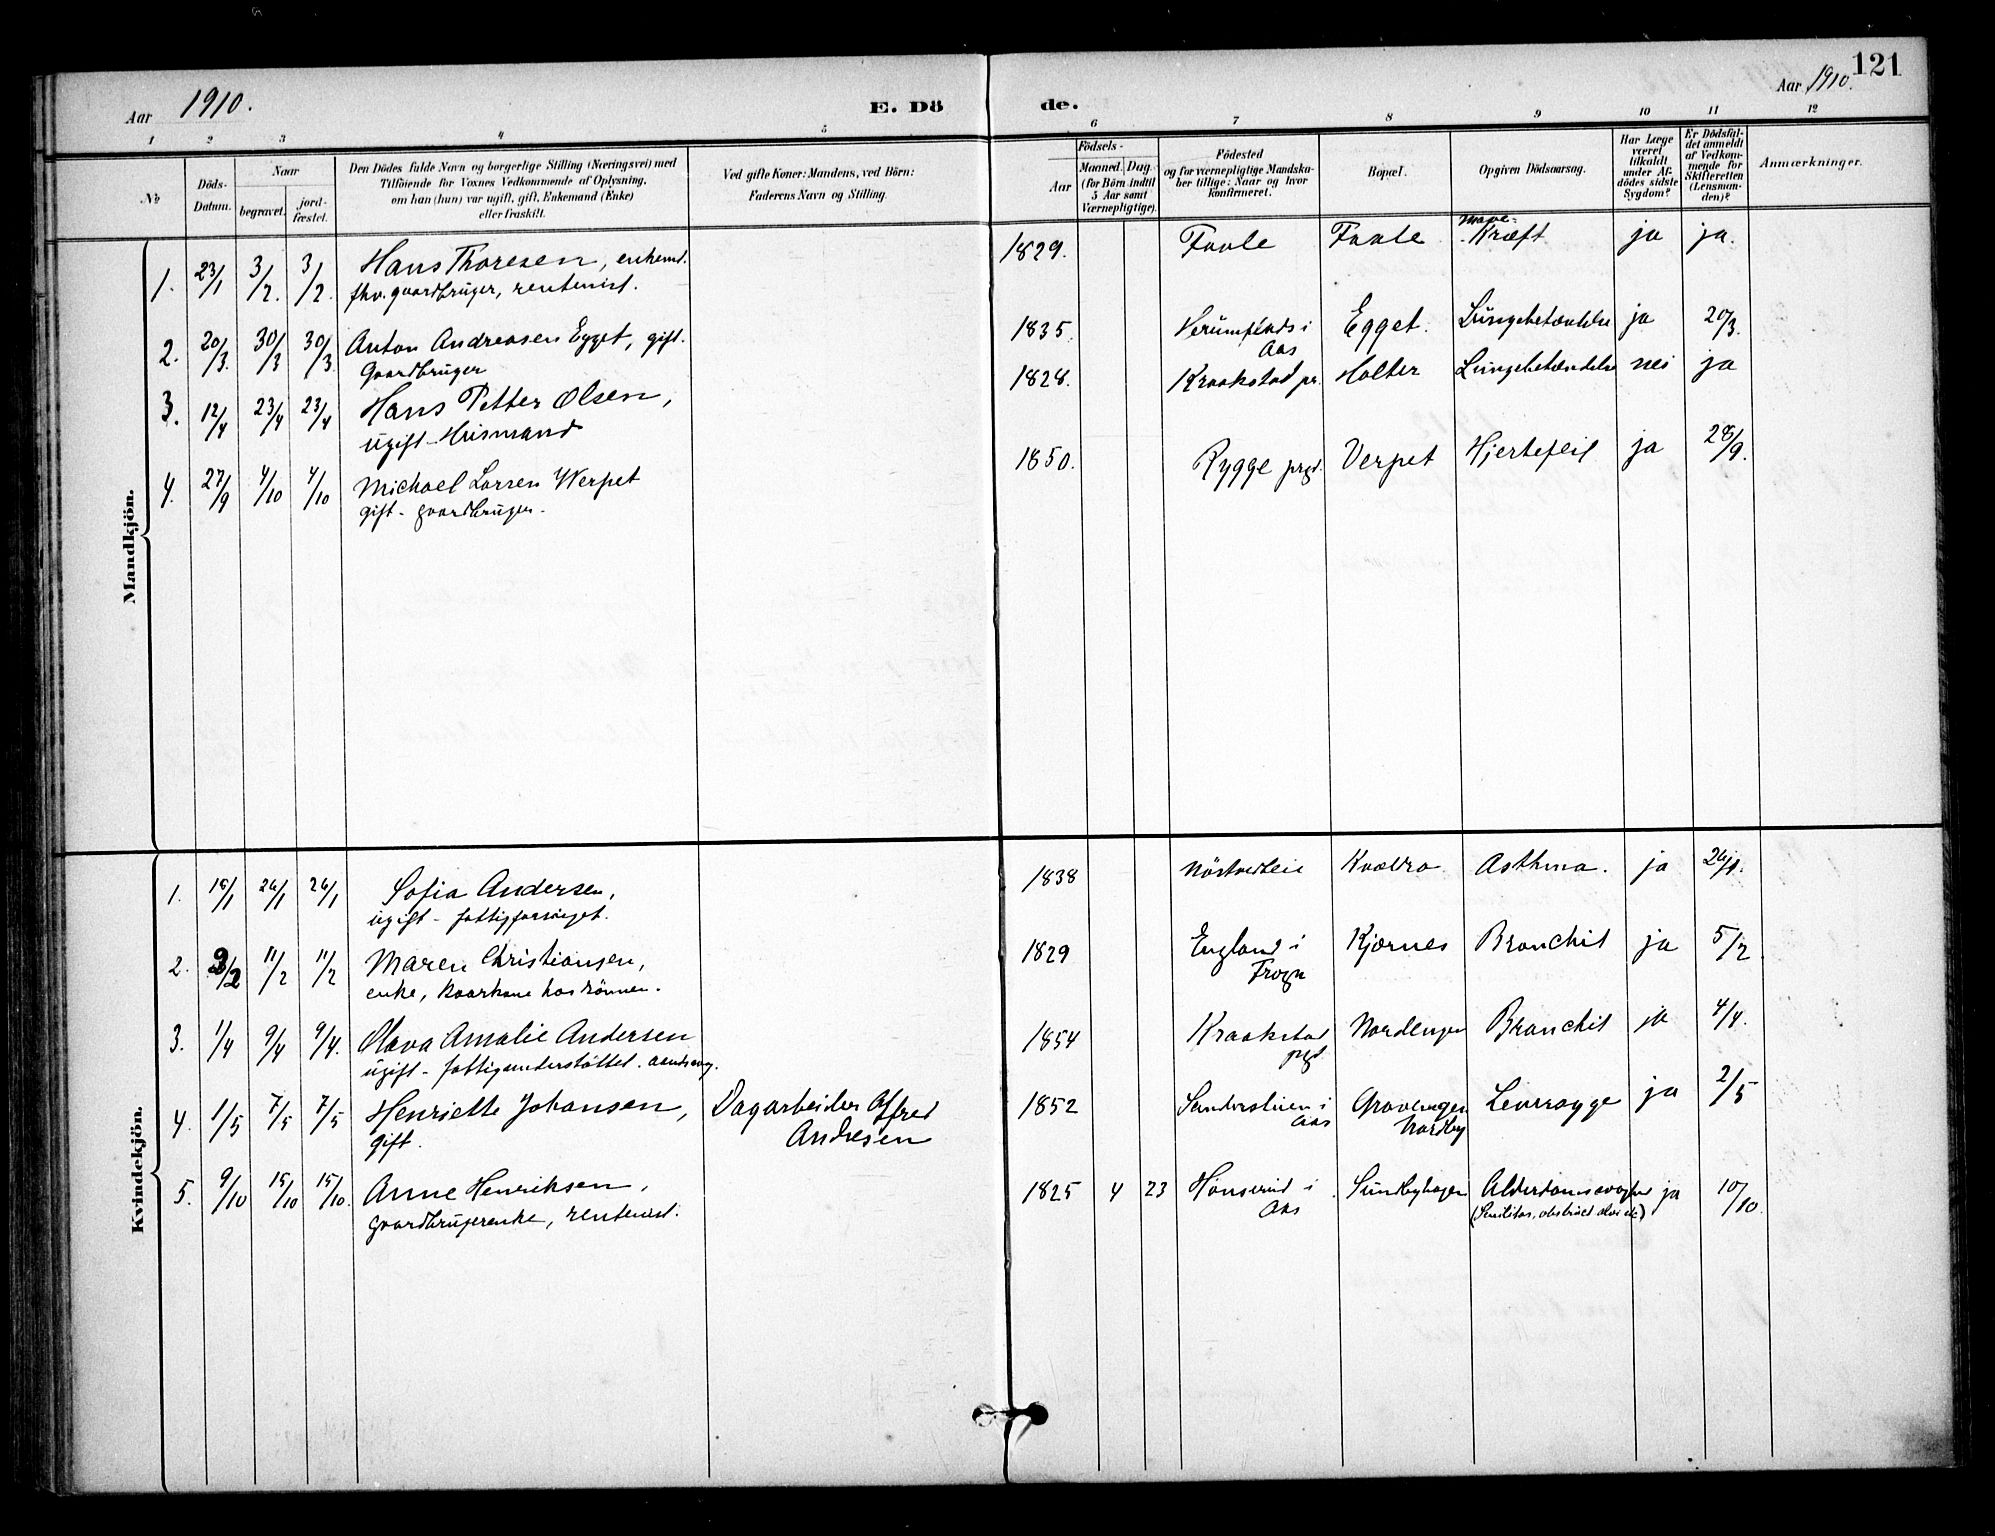 121
Aar 1910. E. Dö de. Aar 1910.
1 2 3 4 5 6 7 8 9 10 11 12
No
Döds-
Datum.
Naar
begravet.
jord-
fæstet.
Den Dödes fulde Navn og borgerlige Stilling (Næringsvei) med
Tilföiende for Voxnes Vedkommende af Oplysning,
om han (hun) var ugift, gift, Enkemand (Enke)
eller fraskilt.
Ved gifte Koner: Mandens, ved Börn:
Faderens Navn og Stilling.
Födsels-
Aar
Maaned. Dag.
(for Börn indtil
5 Aar samt
Værnepligtige).
Födested
og for værnepligtige Mandska-
ber tillige: Naar og hvor
konfirmeret.
Bopæl.
Opgiven Dödsaarsag.
Har Læge
været
tilkaldt
under Af-
dödes sidste
Sygdom?
Er Dödsfal-
det anmeldt
af Vedkom-
mende for
Skifteretten
(Lensman-
den)?
Anmærkninger.
Mandkjön.
1. 23/1 3/2. 3/2. Hans Thoresen, enkemd. 1829. Faale Faale Mave-Kræft ja ja.
fhv. gaardbruger, rentenist.
2. 20/3. 30/3 30/3 Anton Andreasen Egget, gift. 1835. i Aas Egget. Lungebetændelse ja 20/3.
Gaardbruger
3. 12/4 23/4 23/4 Hans Petter Olsen, 1828. Kraakstad pr. Holter Lungebetændelse nei ja
ugift - Husmand
4. 27/9 4/10 4/10 Michael Larsen Werpet 1850. Rygge prgd. Verpet Hjertefeil ja 28/9.
gift - gaardbruger.
Kvindekjön.
1. 18/1 26/1 26/1 Sofia Andersen, 1838 Kvældro Asthma. ja
ugift - fattigforsörget.
2. 3/2 11/2 11/2 Maren Christiansen, 1829 England i Frogn Kjærnes Bronchit ja 5/2
enke, kaarkone hos sönnen.
3. 1/4 9/4 9/4. Olava Amalie Andersen 1854 Kraakstad prgd Nordengen Bronchit ja 4/4.
ugift - fattigunderstöttet.
4. 1/5 7/5 7/5 Henriette Johansen, Dagarbeider Alfred 1852 i Aas Nordby ja 2/5
gift. Andresen
5. 9/10 15/10 15/10. Anne Henriksen, 1825 4 23 Hönserud i Aas Sundbyhagen Alderdomssvaghed ja 10/10.
gaardbrugerenke, rentenist.